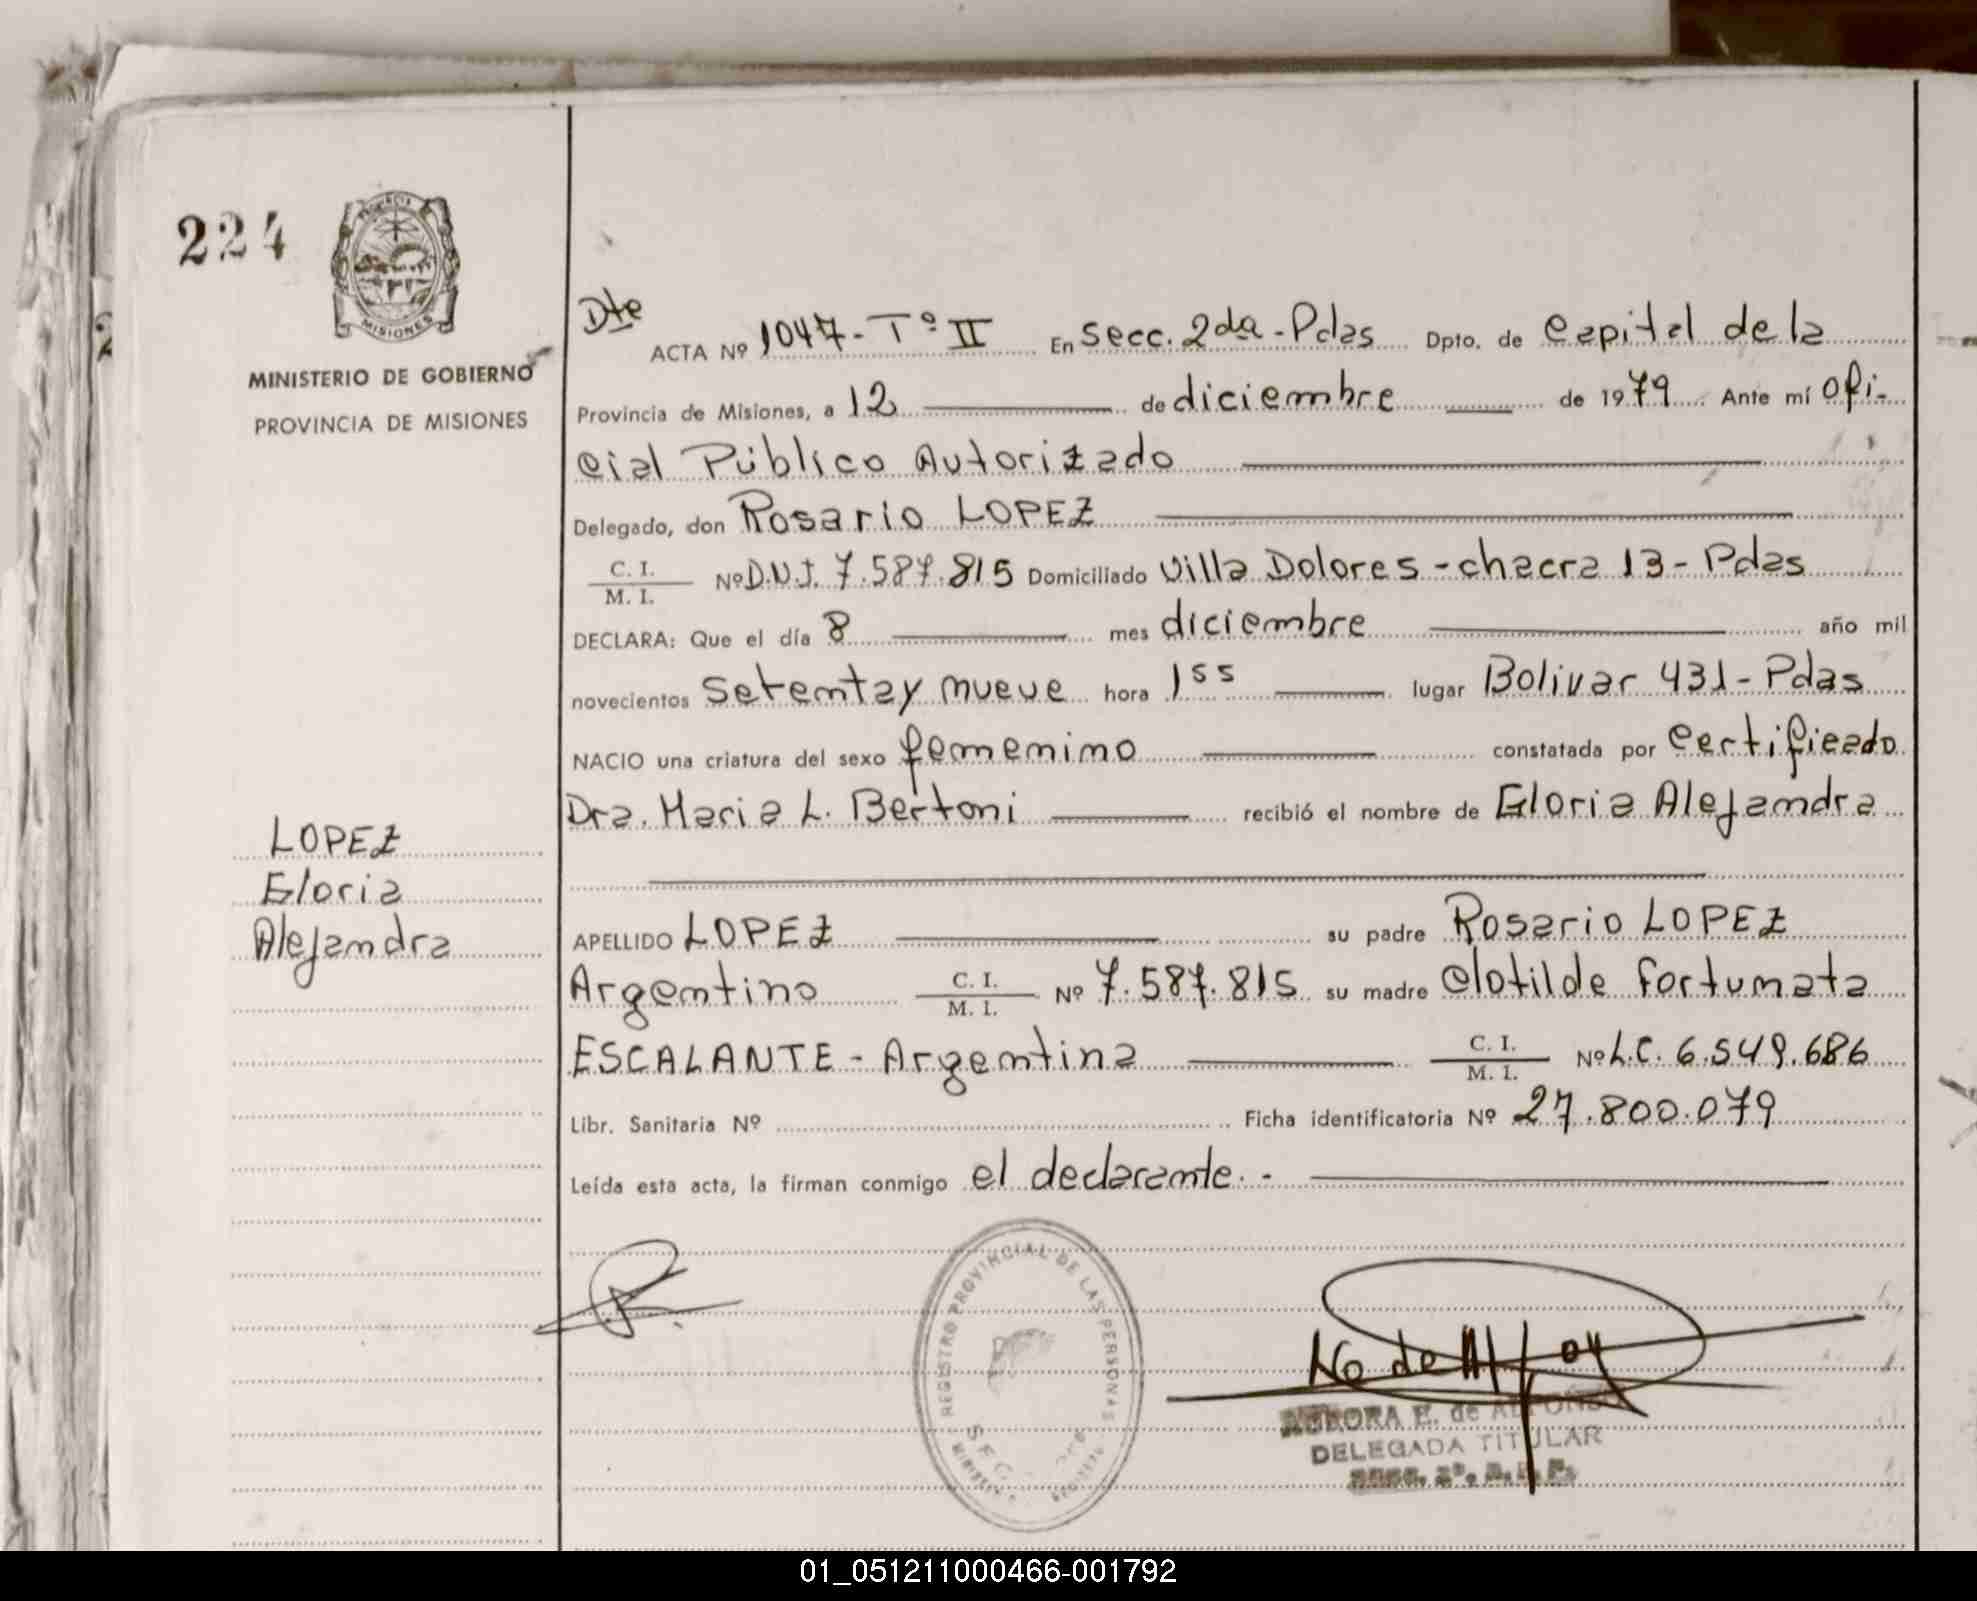 224
PROVINCIA
MISIONES
MINISTERIO DE GOBIERNO
PROVINCIA DE MISIONES
Dte
ACTA Nº 1047-Tº II En Secc. 2da-Pdas Dpto. de Capital de la
Provincia de Misiones, a 12 de diciembre de 1979 Ante mí Ofi-
cial Público Autorizado
Delegado, don Rosario LOPEZ
C. I.
M. I. Nº D.N.I. 7.587.815 Domiciliado Villa Dolores-chacra 13-Pdas
DECLARA: Que el día 8 mes diciembre año mil
novecientos Setentay nueve hora 1 55 lugar Bolivar 431-Pdas
NACIO una criatura del sexo femenino constatada por Certificado
Dra. Maria L. Bertoni recibió el nombre de Gloria Alejandra
LOPEZ
Gloria
Alejandra
APELLIDO LOPEZ su padre Rosario LOPEZ
Argentino C. I.
M. I. Nº 7.587.815 su madre Clotilde Fortunata
ESCALANTE-Argentina C. I.
M. I. Nº L.C. 6.549.686
Libr. Sanitaria Nº Ficha identificatoria Nº 27.800.079
Leída esta acta, la firman conmigo el declarante.-
REGISTRO PROVINCIAL DE LAS PERSONAS
AURORA E. de ALFONSO
DELEGADA TITULAR
01_051211000466-001792